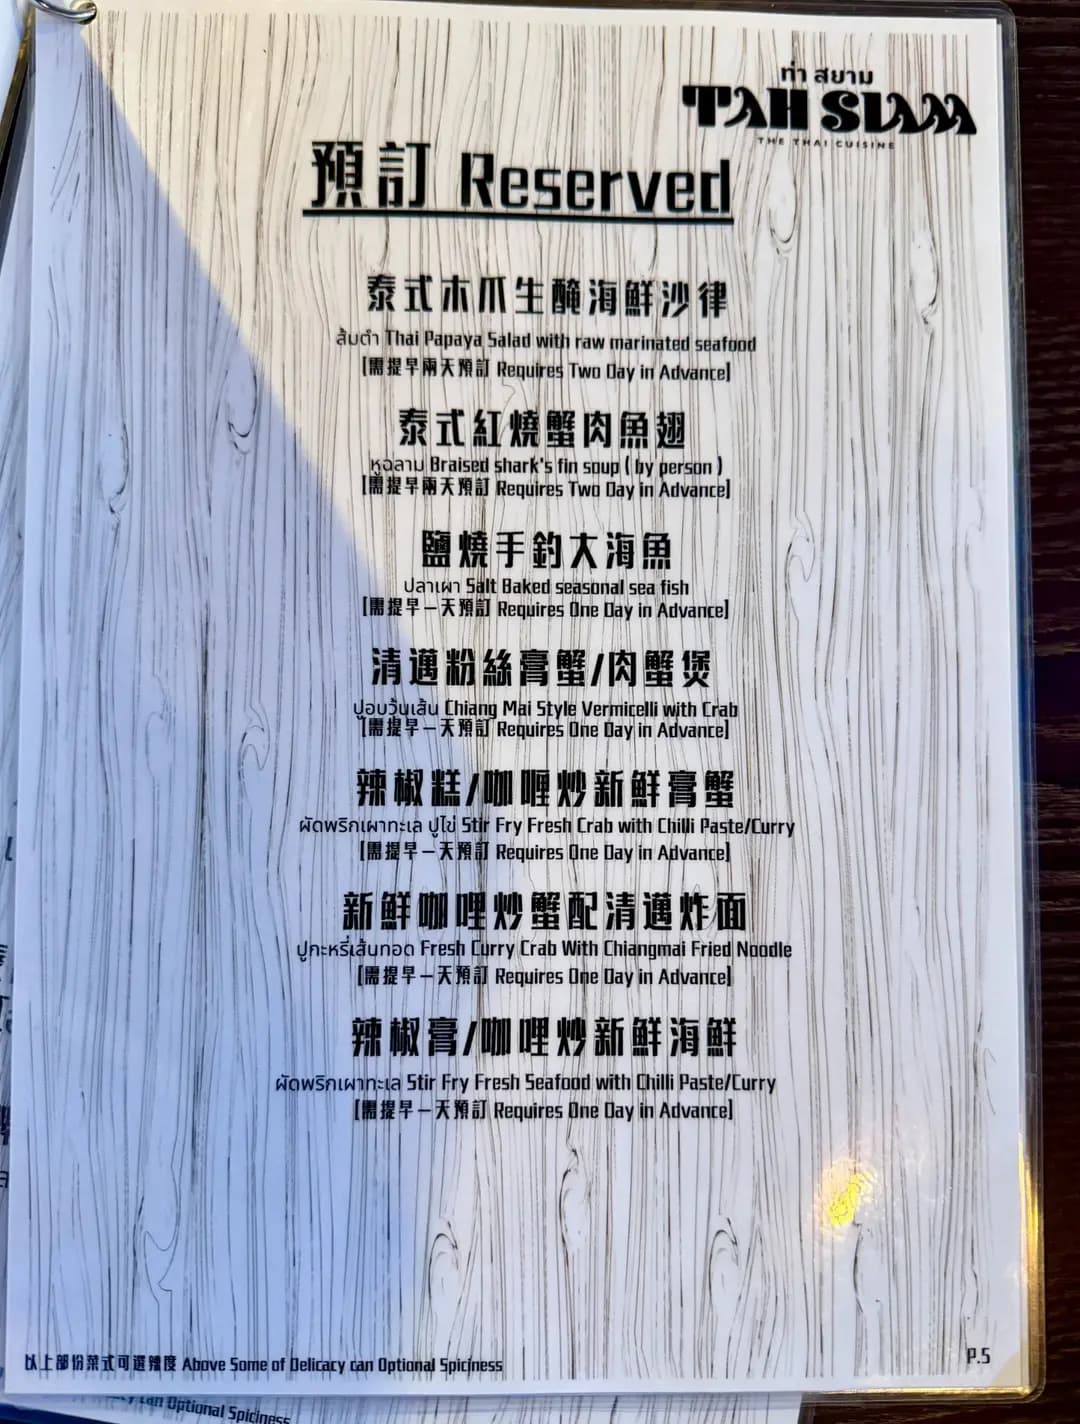 ท่า สยาม
TAH SIAM
THE THAI CUISINE
預訂 Reserved
泰式木爪生醃海鮮沙律
ส้มตำ Thai Papaya Salad with raw marinated seafood
[需提早兩天預訂 Requires Two Day in Advance]
泰式紅燒蟹肉魚翅
หูฉลาม Braised shark's fin soup ( by person )
[需提早兩天預訂 Requires Two Day in Advance]
鹽燒手釣大海魚
ปลาเผา Salt Baked seasonal sea fish
[需提早一天預訂 Requires One Day in Advance]
清邁粉絲膏蟹/肉蟹煲
ปูอบวุ้นเส้น Chiang Mai Style Vermicelli with Crab
[需提早一天預訂 Requires One Day in Advance]
辣椒糕/咖喱炒新鮮膏蟹
ผัดพริกเผาทะเล ปูไข่ Stir Fry Fresh Crab with Chilli Paste/Curry
[需提早一天預訂 Requires One Day in Advance]
新鮮咖哩炒蟹配清邁炸面
ปูกะหรี่เส้นทอด Fresh Curry Crab With Chiangmai Fried Noodle
[需提早一天預訂 Requires One Day in Advance]
辣椒膏/咖哩炒新鮮海鮮
ผัดพริกเผาทะเล Stir Fry Fresh Seafood with Chilli Paste/Curry
[需提早一天預訂 Requires One Day in Advance]
以上部份菜式可選辣度 Above Some of Delicacy can Optional Spiciness
P.5
can Optional Spiciness